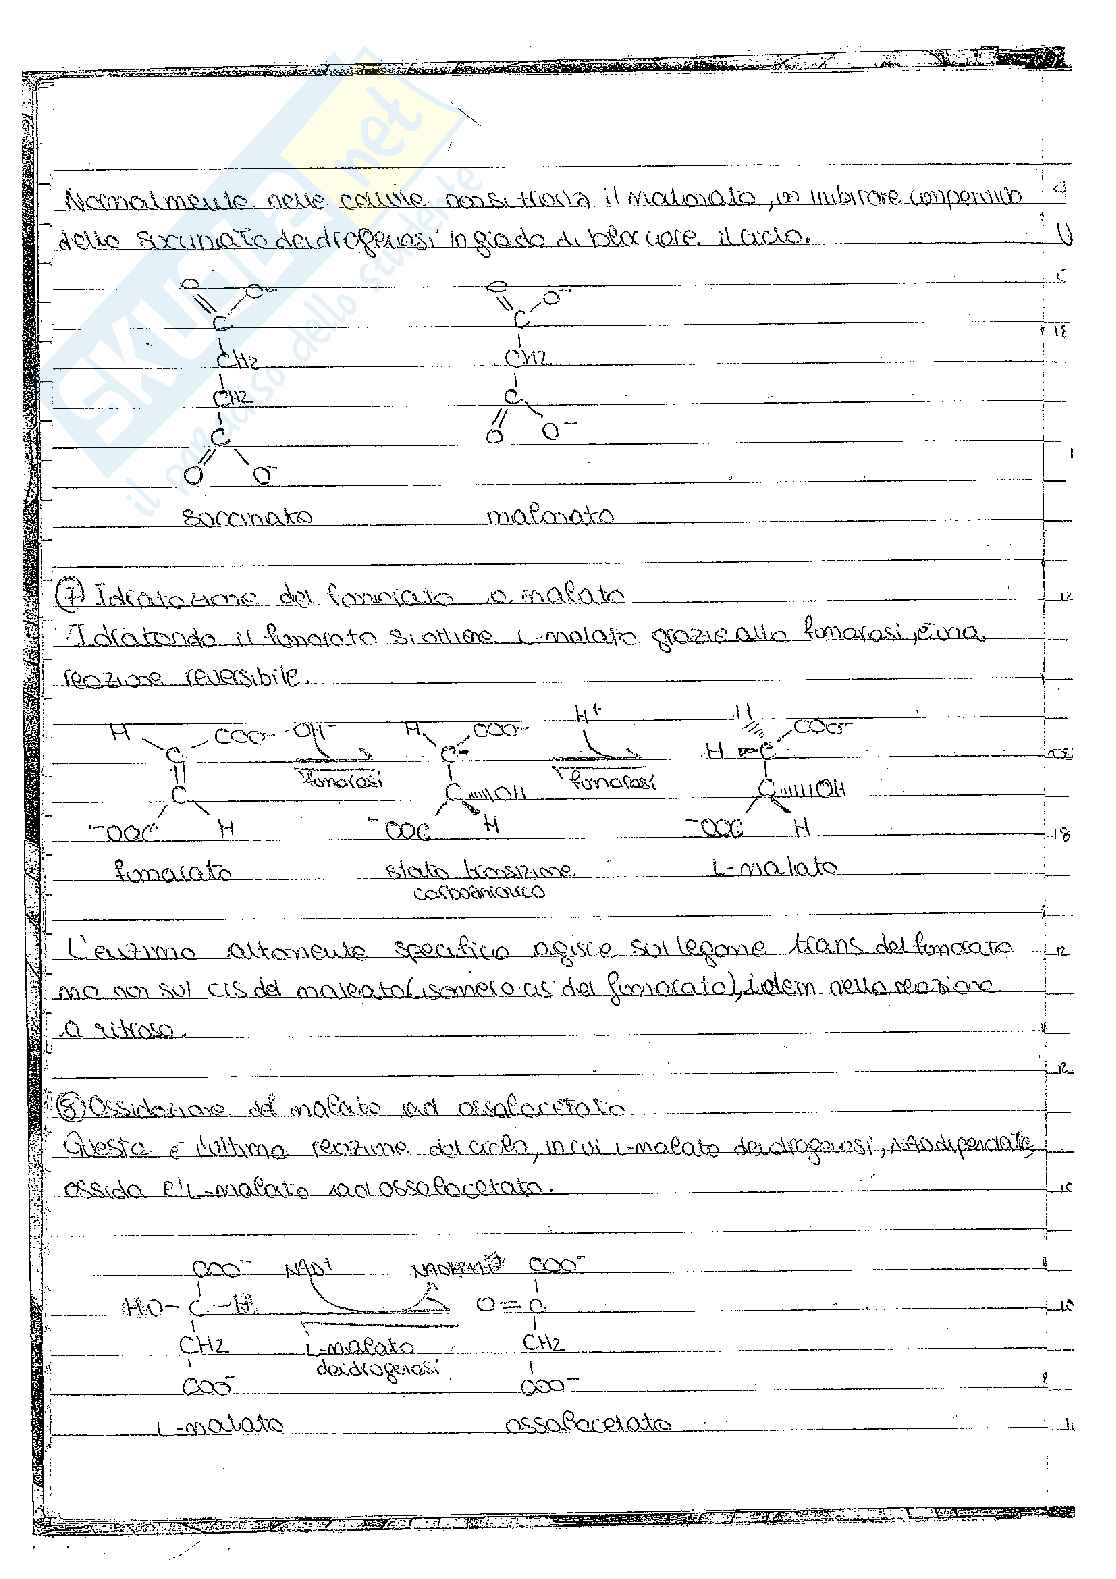 Normalmente nelle cellule non si trova il malonato, un inibitore competitivo
della succinato deidrogenasi in grado di bloccare il ciclo.
O O⁻ O O⁻
C C
CH2 CH2
CH2 C
C O O⁻
O O⁻
succinato malonato
⑦ Idratazione del fumarato a malato
Idratando il fumarato si ottiene L-malato grazie alla fumarasi, è una
reazione reversibile.
H COO⁻ OH⁻ H COO⁻ H⁺ H COO⁻
C fumarasi C⁻ fumarasi H C
C C OH C OH
⁻OOC H ⁻OOC H ⁻OOC H
fumarato stato transizione L-malato
carbanionico
L'enzima altamente specifico agisce sul legame trans del fumarato
ma non sul cis del maleato (isomero cis del fumarato), idem nella reazione
a ritroso.
⑧ Ossidazione del malato ad ossalacetato
Questa è l'ultima reazione del ciclo, in cui L-malato deidrogenasi, NAD dipendente,
ossida il L-malato ad ossalacetato.
COO⁻ NAD⁺ COO⁻
HO-C-H O=C
CH2 L-malato CH2
deidrogenasi
COO⁻ COO⁻
L-malato ossalacetato
skuola.net
il paradiso dello studente